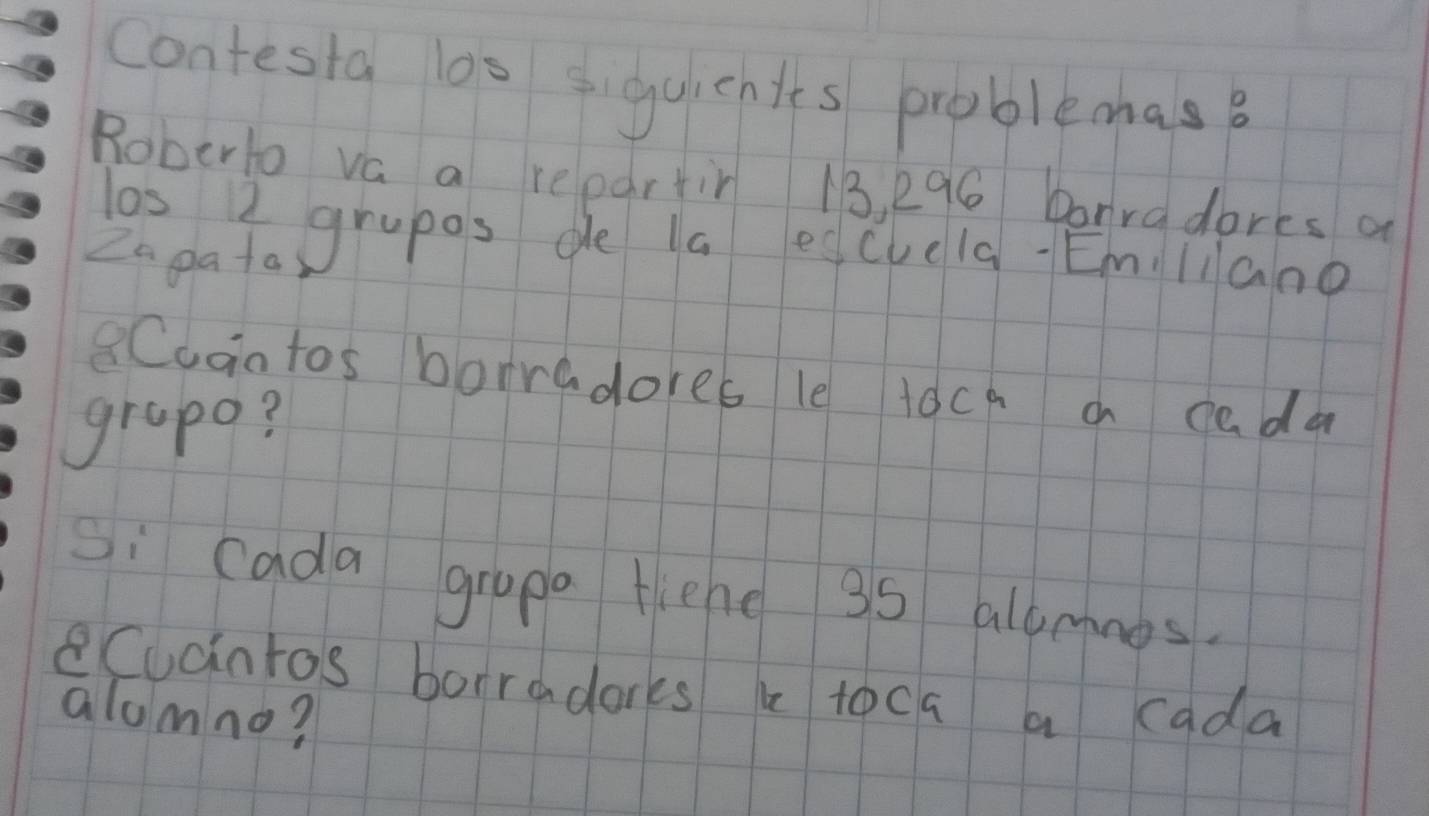 Contesta los siguientes problemas:
Roberto va a repartir 13,296 borradores a
los 12 grupos de la escuela - Emiliano
Zapata,
¿Cuántos borradores le toca a cada
grupo?
Si cada grupo tiene 35 alumnos.
¿Cuántos borradores le toca a cada
alumno?